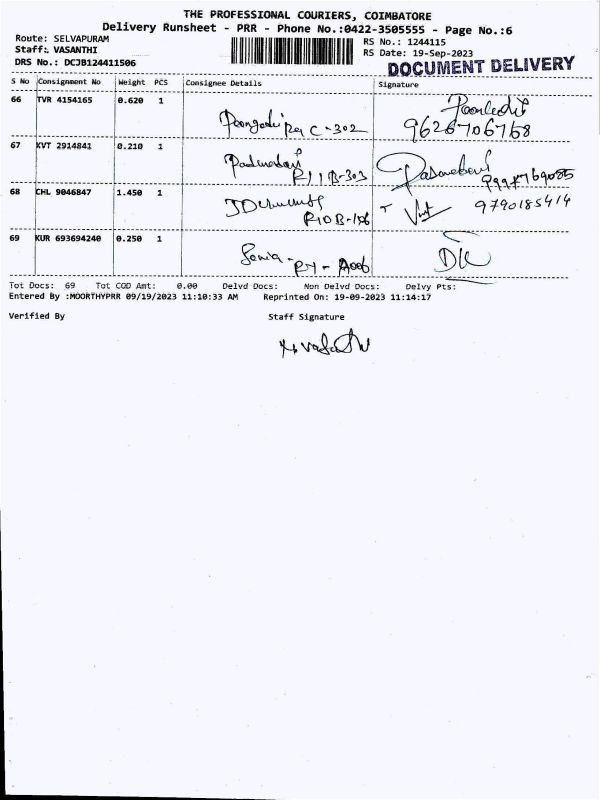 THE PROFESSIONAL COURIERS, COIMBATORE
Delivery Runsheet - PRR - Phone No.:0422-3505555 - Page No.:6
Route: SELVAPURAM
Staff: VASANTHI
DRS No.: DCJB124411506
RS No.: 1244115
RS Date: 19-Sep-2023
DOCUMENT DELIVERY
S No Consignment No Weight PCS Consignee Details Signature
66 TVR 4154165 0.620 1
C-302
9626706768
67 KVT 2914841 0.210 1
R11 B-303
68 CHL 9046847 1.450 1
9790185414
69 KUR 693694240 0.250 1
Sonia
Tot Docs: 69 Tot COD Amt: 0.00 Delvd Docs: Non Delvd Docs: Delvy Pts:
Entered By :MOORTHYPRR 09/19/2023 11:10:33 AM Reprinted On: 19-09-2023 11:14:17
Verified By Staff Signature